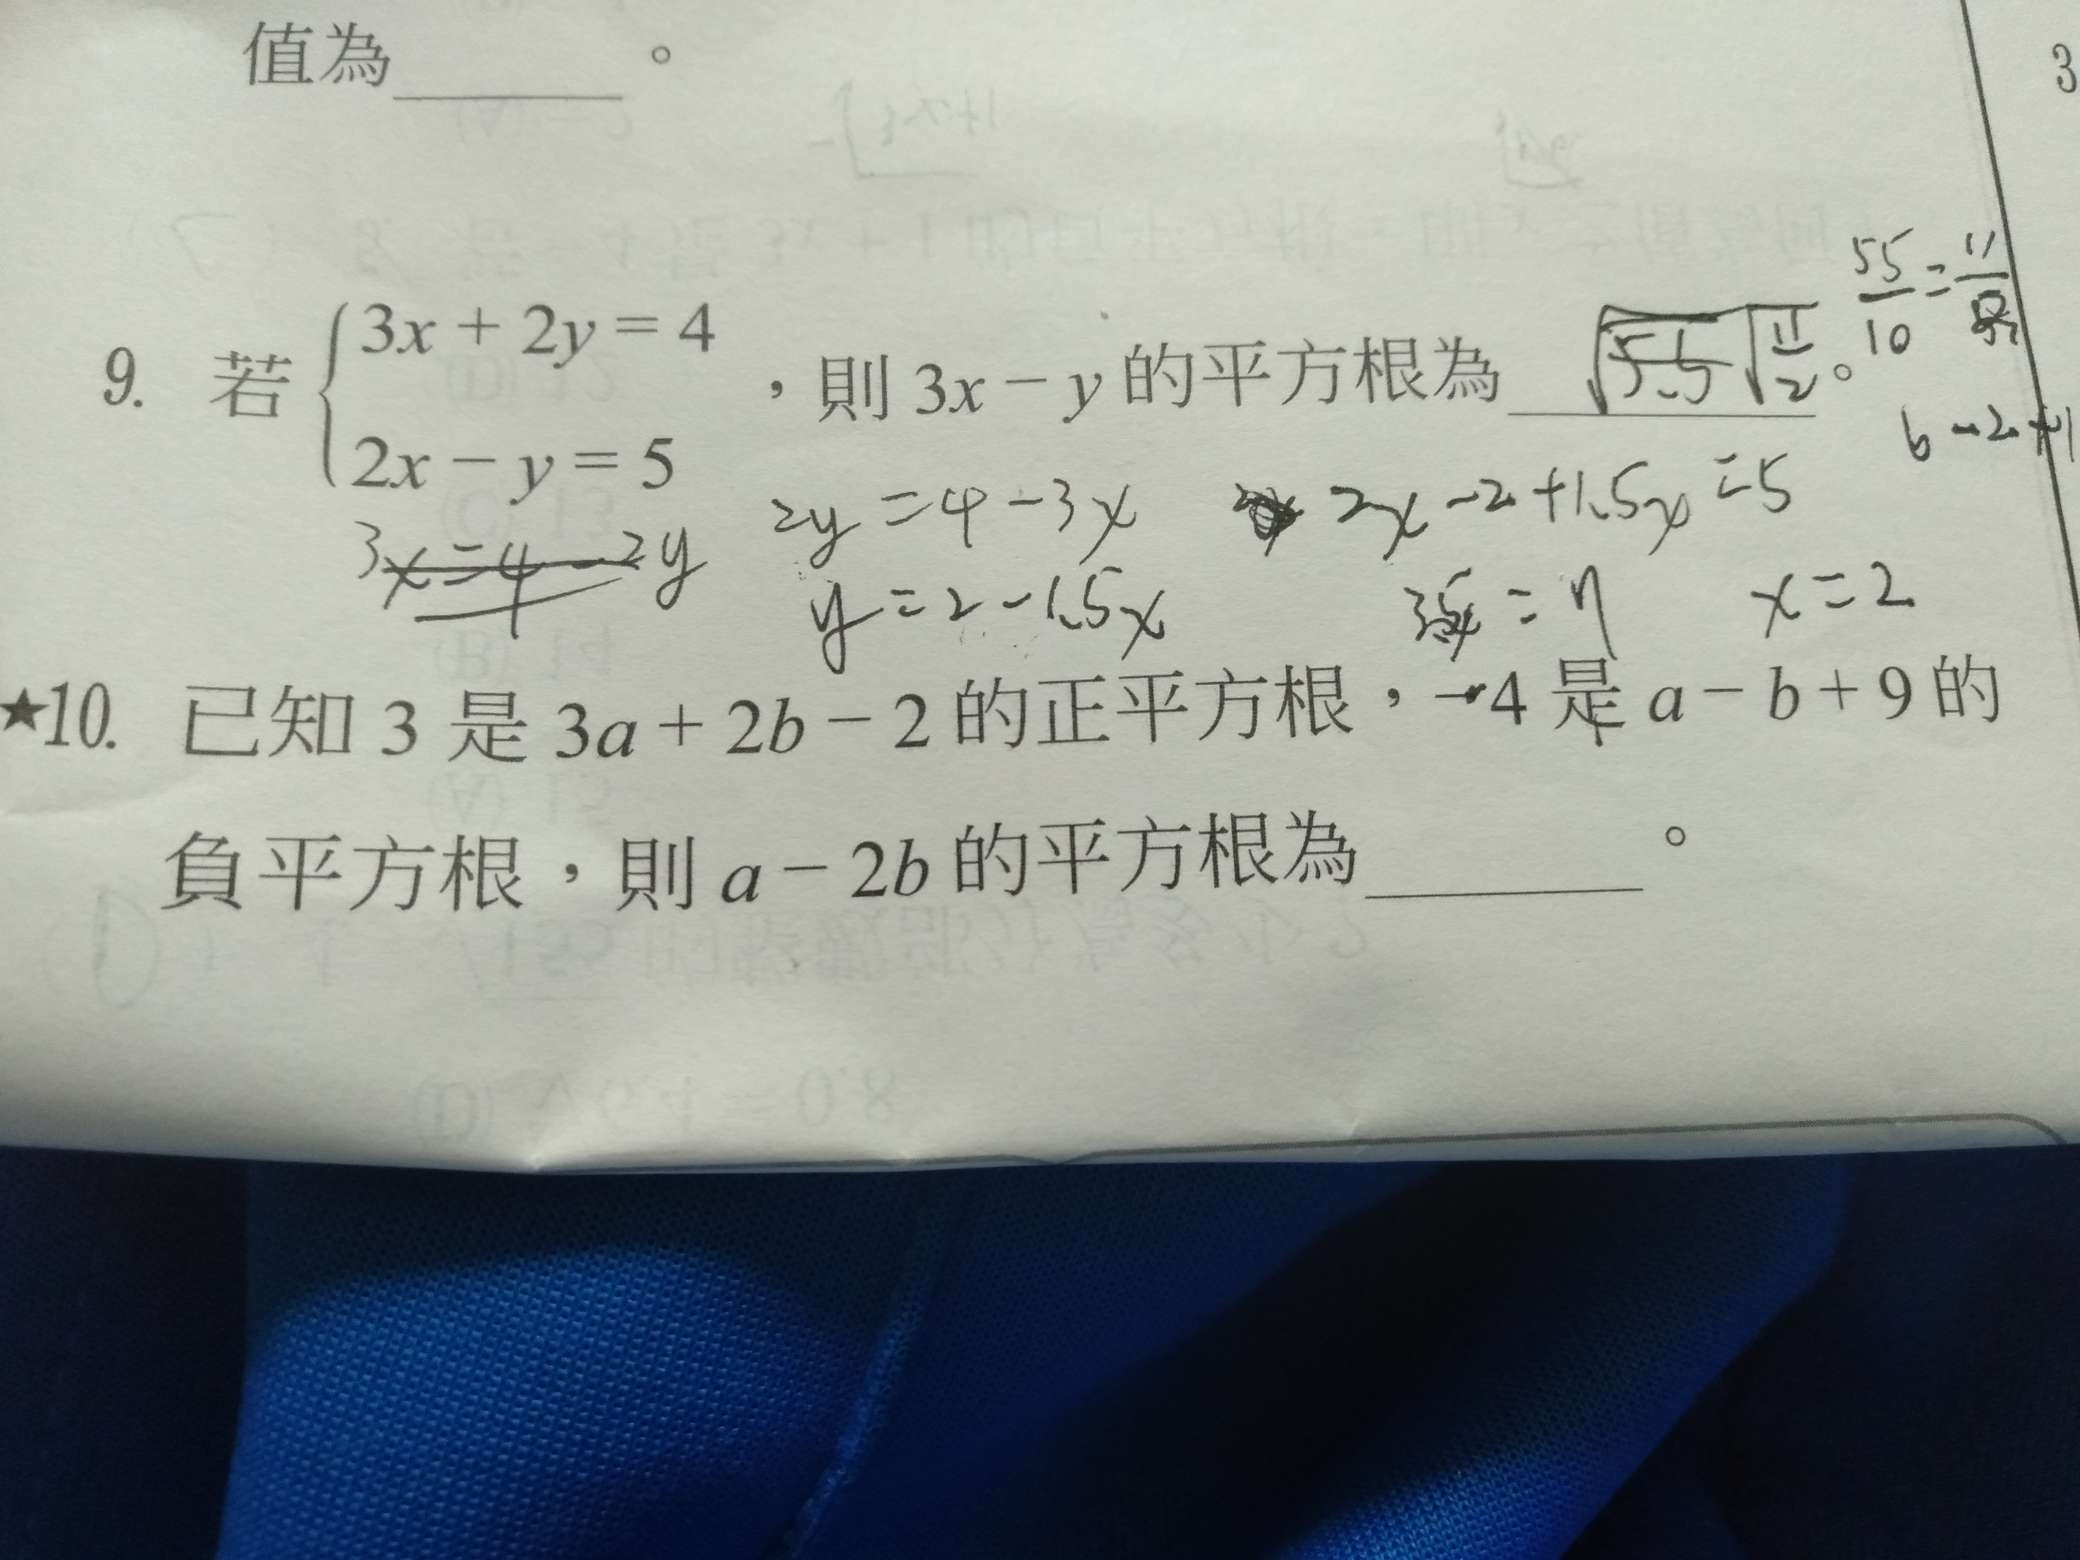 值為______。
3
55/10 = 11/2
9. 若 { 3x + 2y = 4
2x − y = 5 ，則 3x − y 的平方根為 √(11/2) 。
6 − 2 + 1
2y = 4 − 3x 2x − 2 + 1.5x = 5
3x = 4 − 2y
y = 2 − 1.5x 3.5x = 7 x = 2
★10. 已知 3 是 3a + 2b − 2 的正平方根，−4 是 a − b + 9 的
負平方根，則 a − 2b 的平方根為______。